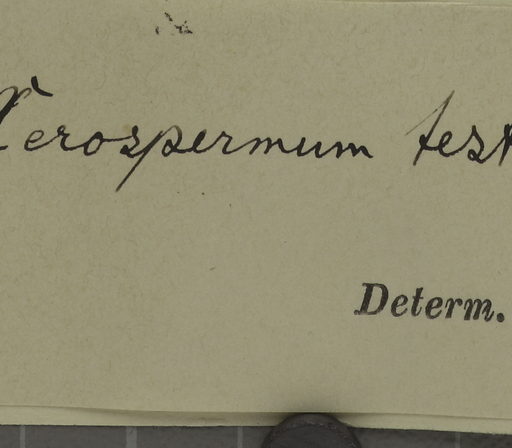 Xerospermum test
Determ.